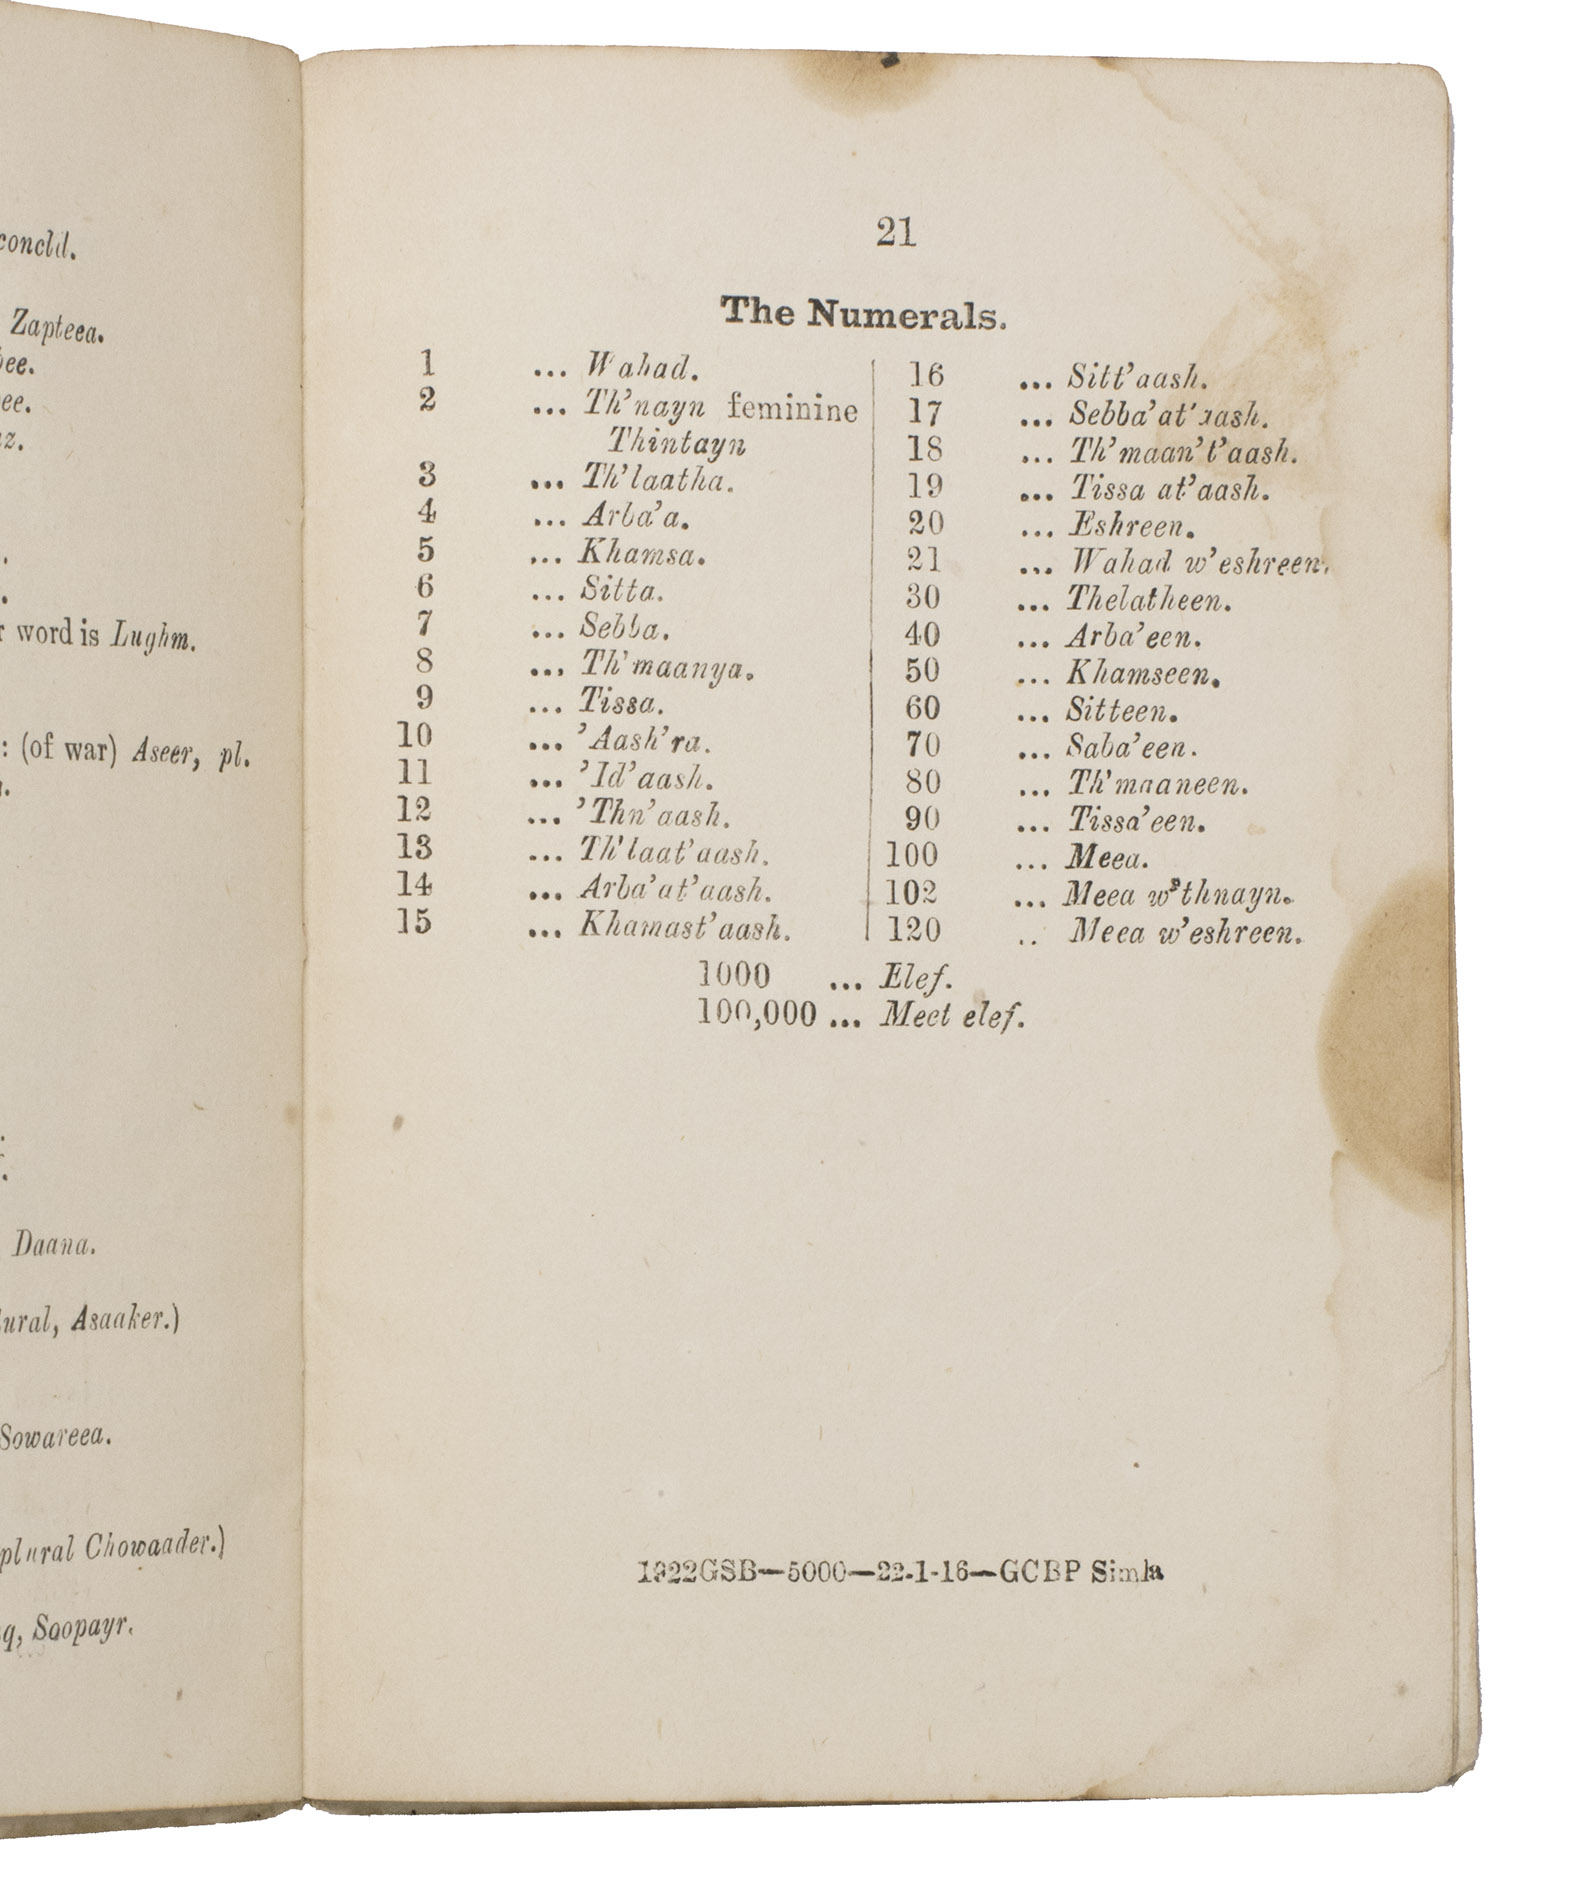 concld.
Zapteea.
ee.
ee.
z.
word is Lughm.
: (of war) Aseer, pl.
Daana.
Asaaker.)
Sowareea.
plural Chowaader.)
q, Soopayr.
21
The Numerals.
1 ... Wahad.
2 ... Th'nayn feminine
Thintayn
3 ... Th'laatha.
4 ... Arba'a.
5 ... Khamsa.
6 ... Sitta.
7 ... Sebba.
8 ... Th'maanya.
9 ... Tissa.
10 ... 'Aash'ra.
11 ... 'Id'aash.
12 ... 'Thn'aash.
13 ... Th'laat'aash.
14 ... Arba'at'aash.
15 ... Khamast'aash.
16 ... Sitt'aash.
17 ... Sebba'at'aash.
18 ... Th'maan't'aash.
19 ... Tissa at'aash.
20 ... Eshreen.
21 ... Wahad w'eshreen.
30 ... Thelatheen.
40 ... Arba'een.
50 ... Khamseen.
60 ... Sitteen.
70 ... Saba'een.
80 ... Th'maaneen.
90 ... Tissa'een.
100 ... Meea.
102 ... Meea w'thnayn.
120 .. Meea w'eshreen.
1000 ... Elef.
100,000 ... Meet elef.
1922GSB—5000—22-1-16—GCBP Simla